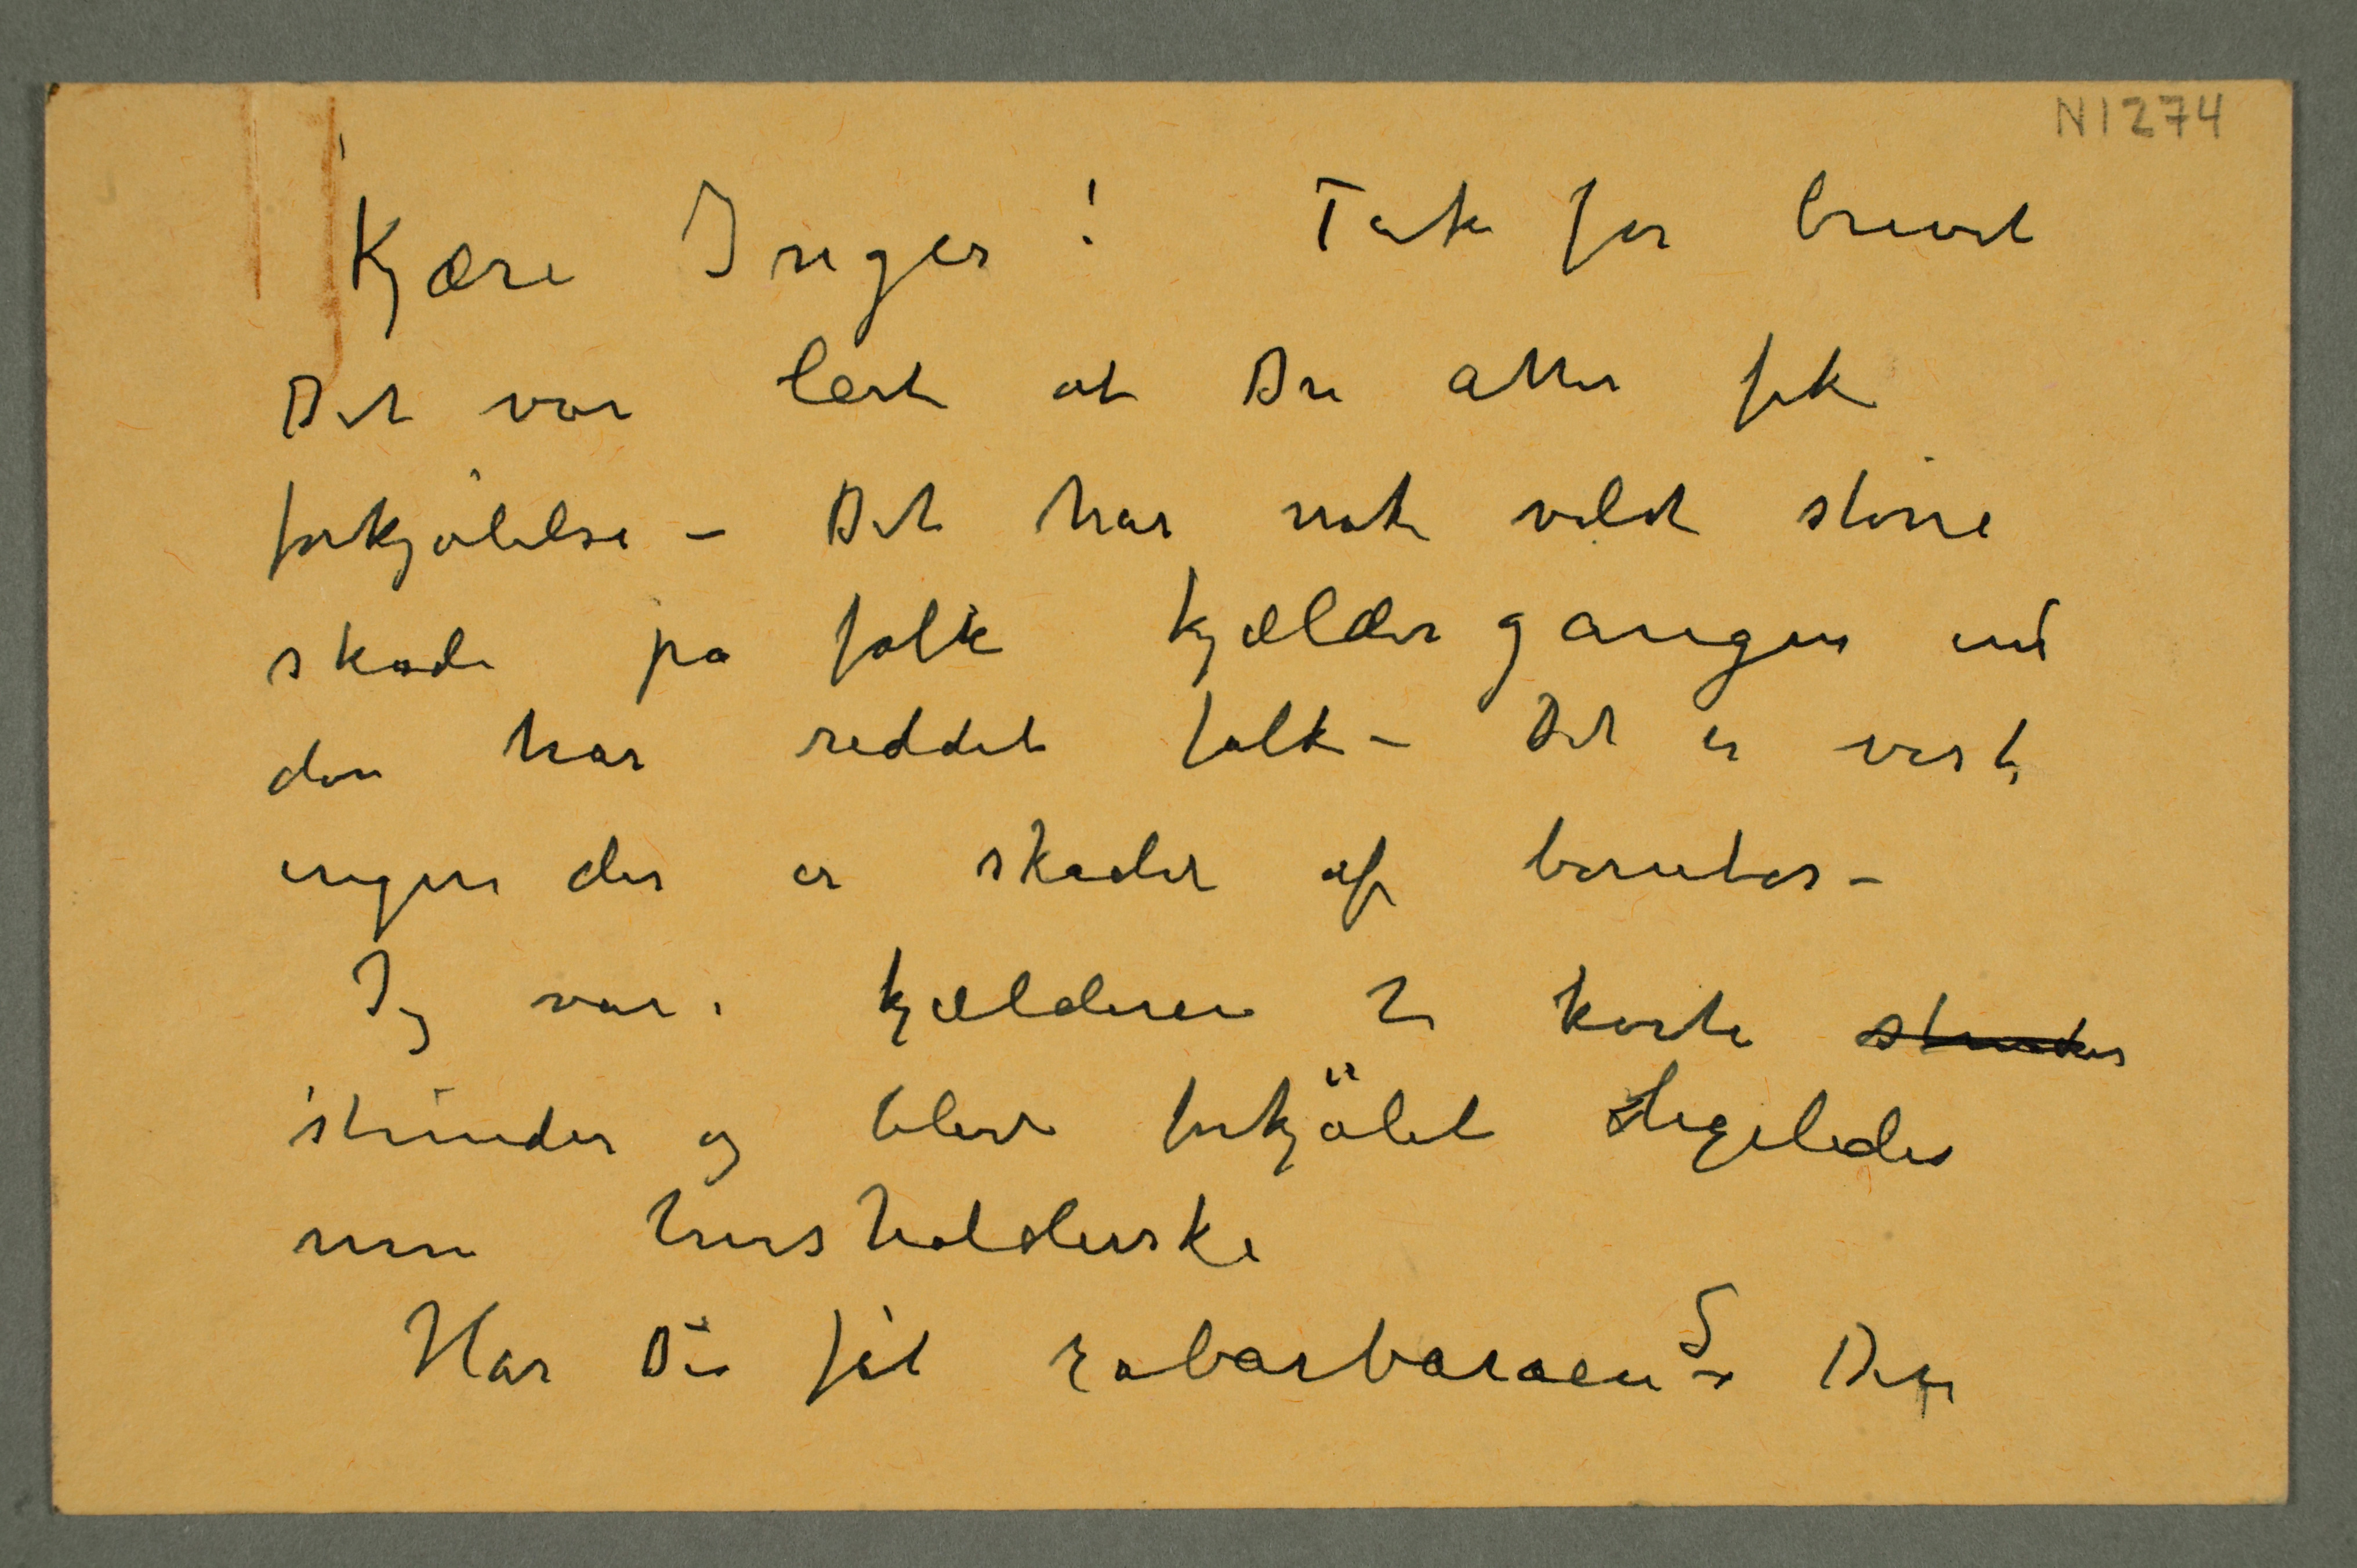 N 1274
Kjære Inger! Tak for brevet
Det var leit at Du atter fik
forkjölelse – Det har nok voldt större
skade på folk kjældergangen end
den har reddet folk – Det er vist
ingen der er skadet af bomber –
Jeg var i kjælderen 2 korte stunder
stunder og blev forkjölet ligeledes
min husholderske
Har Du fåt rabarbraen? Den